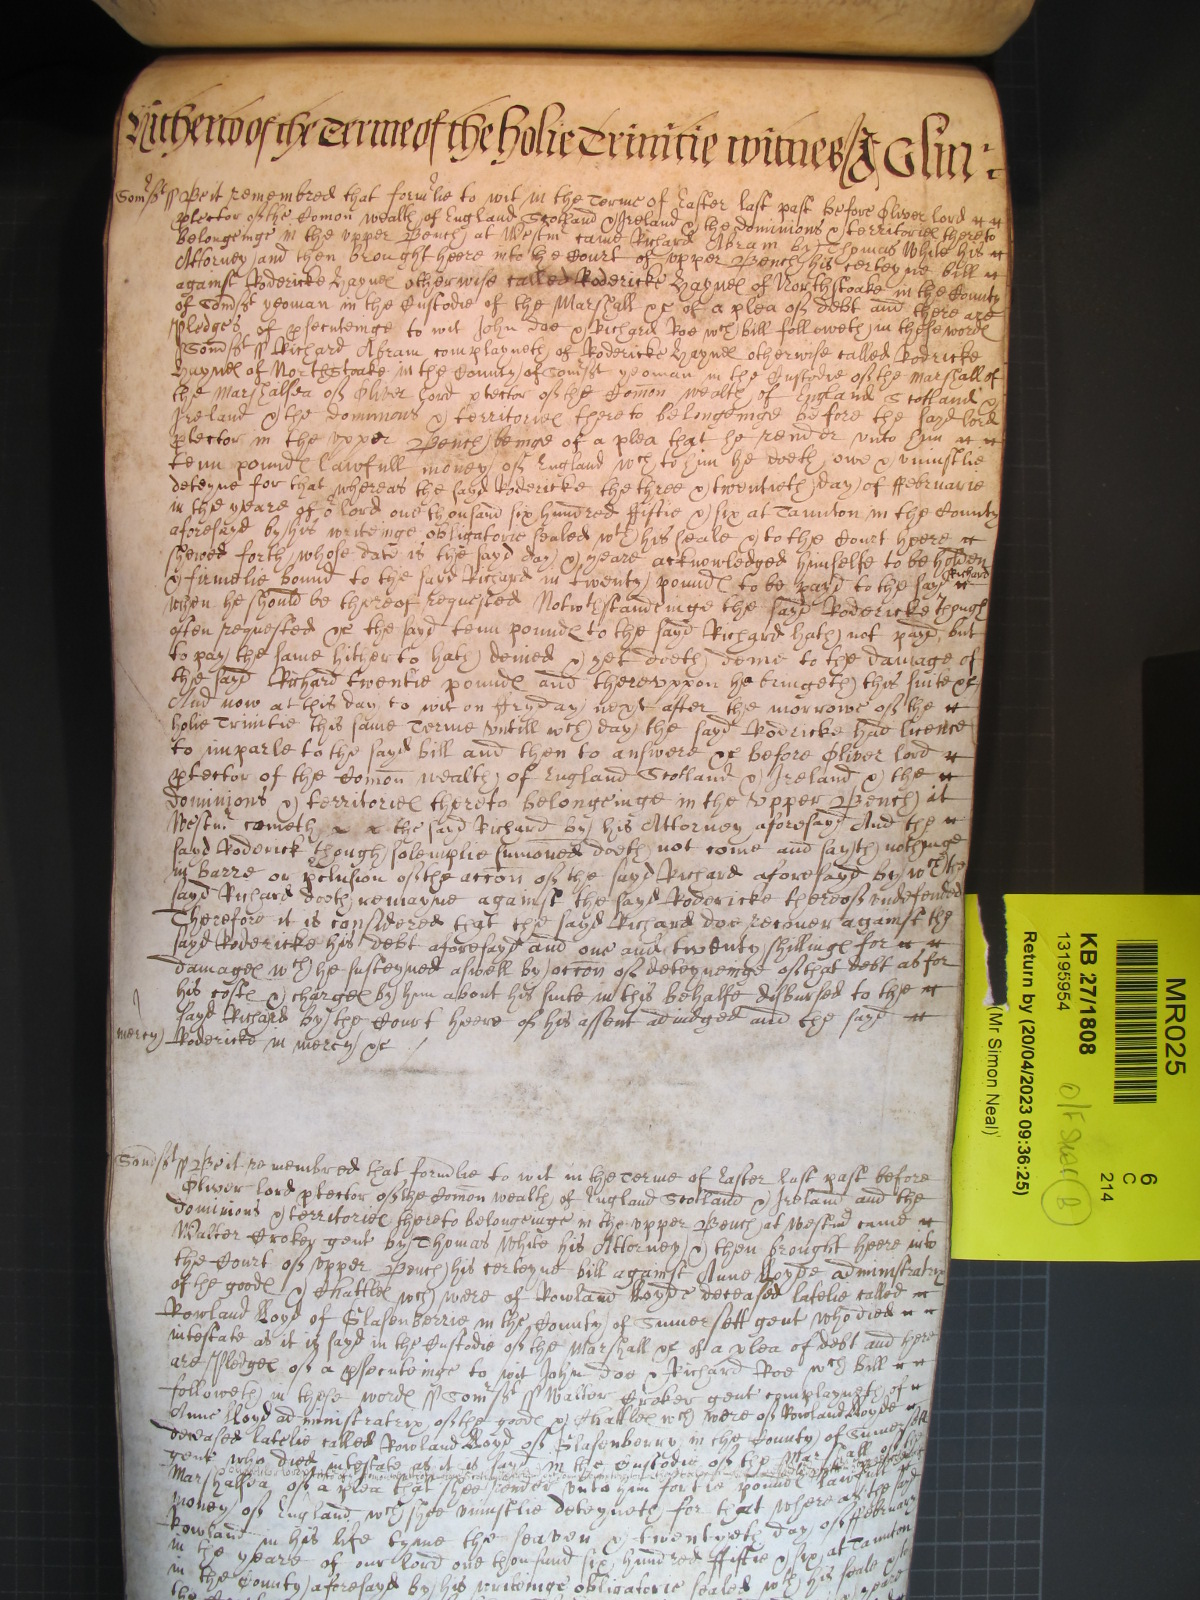 Hitherto of the Terme of the holie Trinitie witnes J Glin:
Som̃st ss Be it remembred that form̃lie to wit in the Terme of Easter last past before Oliver lord
ptector of the Comon wealth of England Scotland & Ireland & the dominions & territories thereto
belongeinge in the upper Bench at Westm̃ came Richard Abram by Thomas White his
Attorney and then brought heere into the Court of upper Bench his certeyne bill
against Rodericke Haynes otherwise called Rodericke Haynes of Northstoake in the County
of Som̃st yeoman in the Custodie of the Marshall &c of a plea of debt and there are
Pledges of psecuteinge to wit John Doe & Richard Roe wch bill followeth in these words
Som̃st ss Richard Abram complayneth of Rodericke Haynes otherwise called Rodericke
Haynes of Northstoake in the County of Som̃st yeoman in the Custodie of the Marshall of
the Marshalsea of Oliver lord ptector of the Comon wealth of England Scotland &
Ireland & the dominions & territories thereto belongeinge before the sayd lord
ptector in the upper Bench beinge of a plea that he render unto him
tenn pounds lawfull money of England wch to him he doeth owe & uniustlie
deteyne for that whereas the sayd Rodericke the three & twentieth day of Februarie
in the yeare of or lord one thousand six hundred fiftie & six at Taunton in the County
aforesayd by his writeinge obligatorie sealed wth his seale & to the Court heere
shewed forth whose date is the sayd day & yeare acknowledged himselfe to be holden
& firmelie bound to the sayd Richard in twenty pounds to be payd to the sayd Richard
when he should be thereof requested Notwthstandeinge the sayd Rodericke though
often requested &c the sayd tenn pounds to the sayd Richard hath not payd but
to pay the same hitherto hath denied & yet doeth denie to the damage of
the sayd Richard twentie pounds and thereuppon he bringeth this suite &c
And now at this day to wit on Fryday next after the morrowe of the
holie Trinitie this same Terme untill wch day the sayd Rodericke had licence
to imparle to the sayd bill and then to answere &c before Oliver lord
ptector of the Comon wealth of England Scotland & Ireland & the
dominions & territories thereto belongeinge in the upper Bench at
Westm̃ cometh the said Richard by his Attorney aforesayd And the
sayd Roderick though solemplie sumoned doeth not come and sayth nothinge
in barre or pclusion of the accon of the sayd Richard aforesayd by wch the
sayd Richard doeth remayne against the sayd Rodericke thereof undefended
Therefore it is considered that the sayd Richard doe recover against the
sayd Rodericke his debt aforesayd and one and twenty shillings for
damages wch he susteyned aswell by occon of deteyneinge of that debt as for
his costs & charges by him about his suite in this behalfe disbursed to the
sayd Richard by the Court heere of his assent adiudged and the sayd
mercy Rodericke in mercy &c
Som̃st ss Be it remembred that form̃lie to wit in the Terme of Easter last past before
Oliver lord ptector of the Comon wealth of England Scotland & Ireland and the
dominions & territories thereto belongeinge in the upper Bench at Westm̃ came
Walter Croker gent by Thomas White his Attorney & then brought heere into
the Court of upper Bench his certeyne bill against Anne lloyde administratrix
of the goods & Chattles wch were of Rowland lloyde deceased latelie called
Rowland lloyd of Glasenberrie in the County of Sumersett gent who died
intestate as it is sayd in the Custodie of the Marshall &c of a plea of debt and here
are Pledges of a psecuteinge to wit John Doe & Richard Roe wch bill
followeth in these words ss Som̃st ss Walter Croker gent complayneth of
Anne lloyd administratrix of the goods & Chattles wch were of Rowland lloyde
deceased latelie called Rowland lloyd of Glasenberry in the County of Sumersett
gent who died intestate as it is sayd in the Custodie of the Marshall of the
Marshalsea of a plea that shee render unto him fortie pounds lawfull
money of England wch shee uniustlie deteyneth for that whereas the sayd
Rowland in his life tyme the seaven & twentyeth day of February
in the yeare of our lord one thousand six hundred fiftie & six at Taunton
in the County aforesayd by his writeinge obligatorie sealed wth his seale & to
MR025
6
C
214
KB 27/1808
13195954
Return by (20/04/2023 09:36:25)
(Mr Simon Neal)